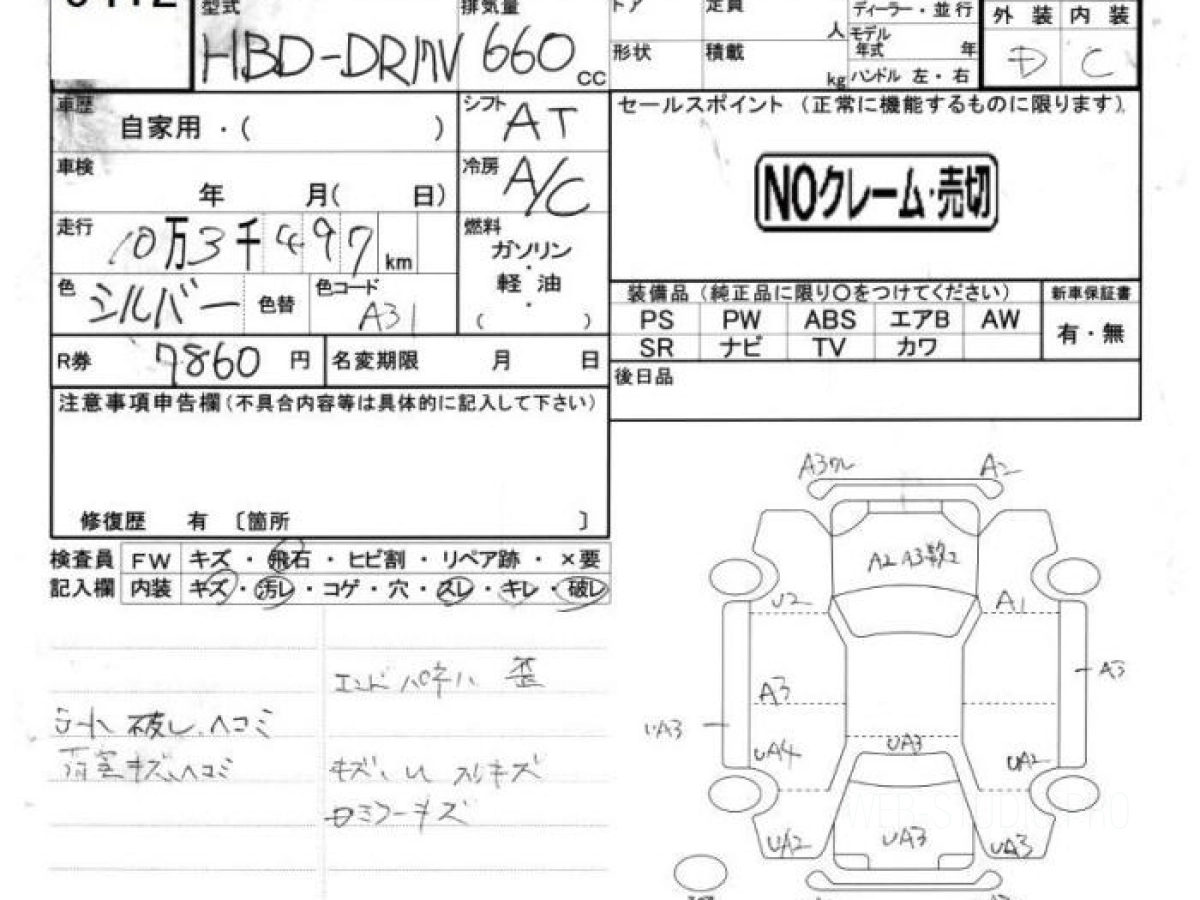 型式
排気量
HBD-DR17V 660 CC
ドア
定員
人
形状
積載
kg
ディーラー・並行
モデル
年式 年
ハンドル 左・右
外装 内装
D C
車歴
自家用・( )
シフト AT
車検
年 月( 日)
冷房 A/C
走行
10万3千497 km
燃料
ガソリン
・
軽油
( )
色 シルバー
色替
色コード
A31
R券 7860 円
名変期限 月 日
注意事項申告欄(不具合内容等は具体的に記入して下さい)
修復歴 有 〔箇所 〕
セールスポイント (正常に機能するものに限ります)
NOクレーム・売切
装備品 (純正品に限り○をつけてください)
新車保証書
PS PW ABS エアB AW
SR ナビ TV カワ
有・無
後日品
検査員 FW キズ・飛石・ヒビ割・リペア跡・×要
記入欄 内装 キズ・汚レ・コゲ・穴・スレ・キレ・破レ
エンドパネル 歪
シート 破レ、ヘコミ
荷室キズ、ヘコミ
キズ、U スリキズ
ミラーキズ
A3ワレ
A2 A3数コ
U2
A1
A3
A3
UA3
UA4
UA3
UA2
UA2
UA3
UA3
WEB-STUDIO.PRO